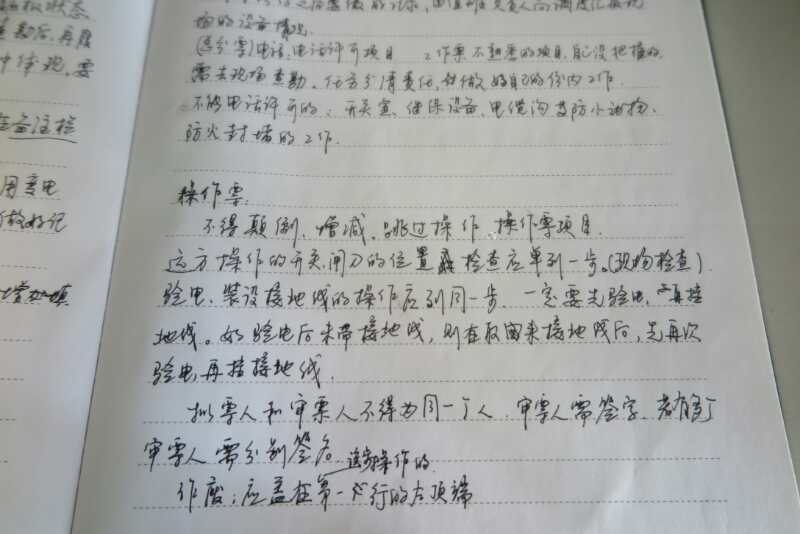 板状态
勘后,再履
中体现,要
在备注栏
用变电
做好记
场的设备情况.
(运分票)电话,电话许可项目 工作票不熟悉的项目,自己没把握的,
需去现场查勘。任务分清责任,并做好自己的份内工作.
不能电话许可的:开关室,继保设备,电缆沟及防小动物,
防火封堵的工作.
操作票.
不得颠倒、增减、跳过操作、操作票项目.
远方操作的开关、闸刀的位置 检查应单列一步。(现场检查)
验电,装设接地线的操作应列同一步. 一定要先验电,再挂
地线。如验电后未带接地线,则在取回来接地线后,先再次
验电,再挂接地线.
拟票人和审票人不得为同一个人,审票人需签字,若有多个
审票人需分别签名
操作的
作废:应盖在第一 行的右顶端